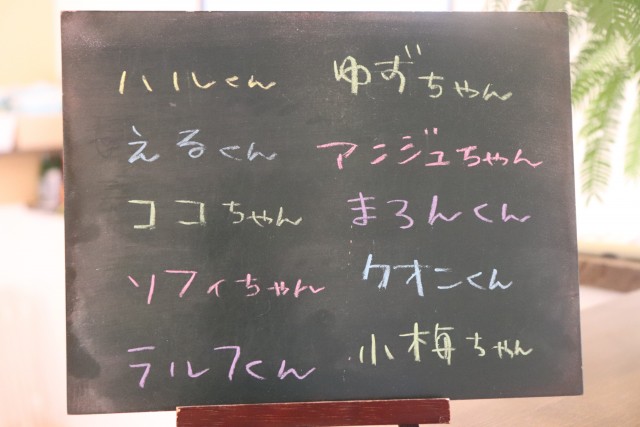 ハルくん ゆずちゃん
えるくん アンジュちゃん
ココちゃん まろんくん
ソフィちゃん クオンくん
ラルフくん 小梅ちゃん